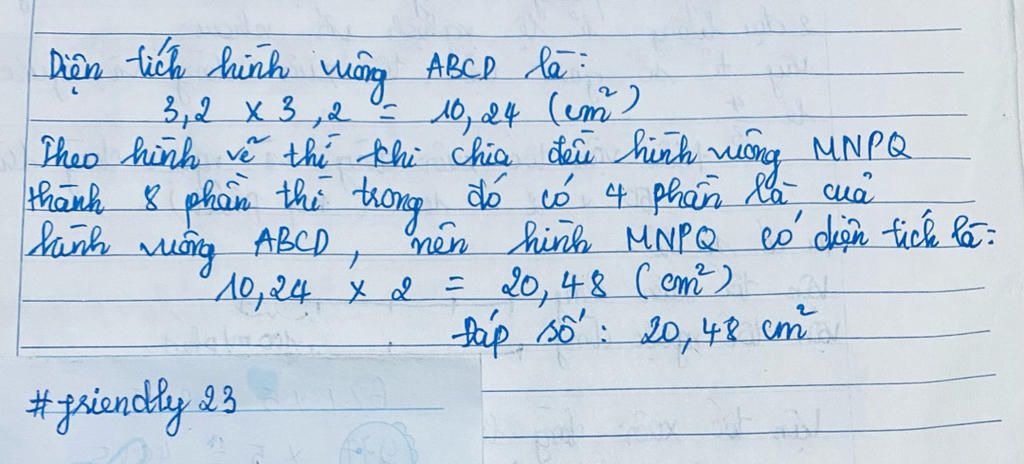 Diện tích hình vuông ABCD là:
3,2 x 3,2 = 10,24 (cm²)
Theo hình vẽ thì khi chia đều hình vuông MNPQ
thành 8 phần thì trong đó có 4 phần là của
hình vuông ABCD, nên hình MNPQ có diện tích là:
10,24 x 2 = 20,48 (cm²)
Đáp số: 20,48 cm²
#friendly 23